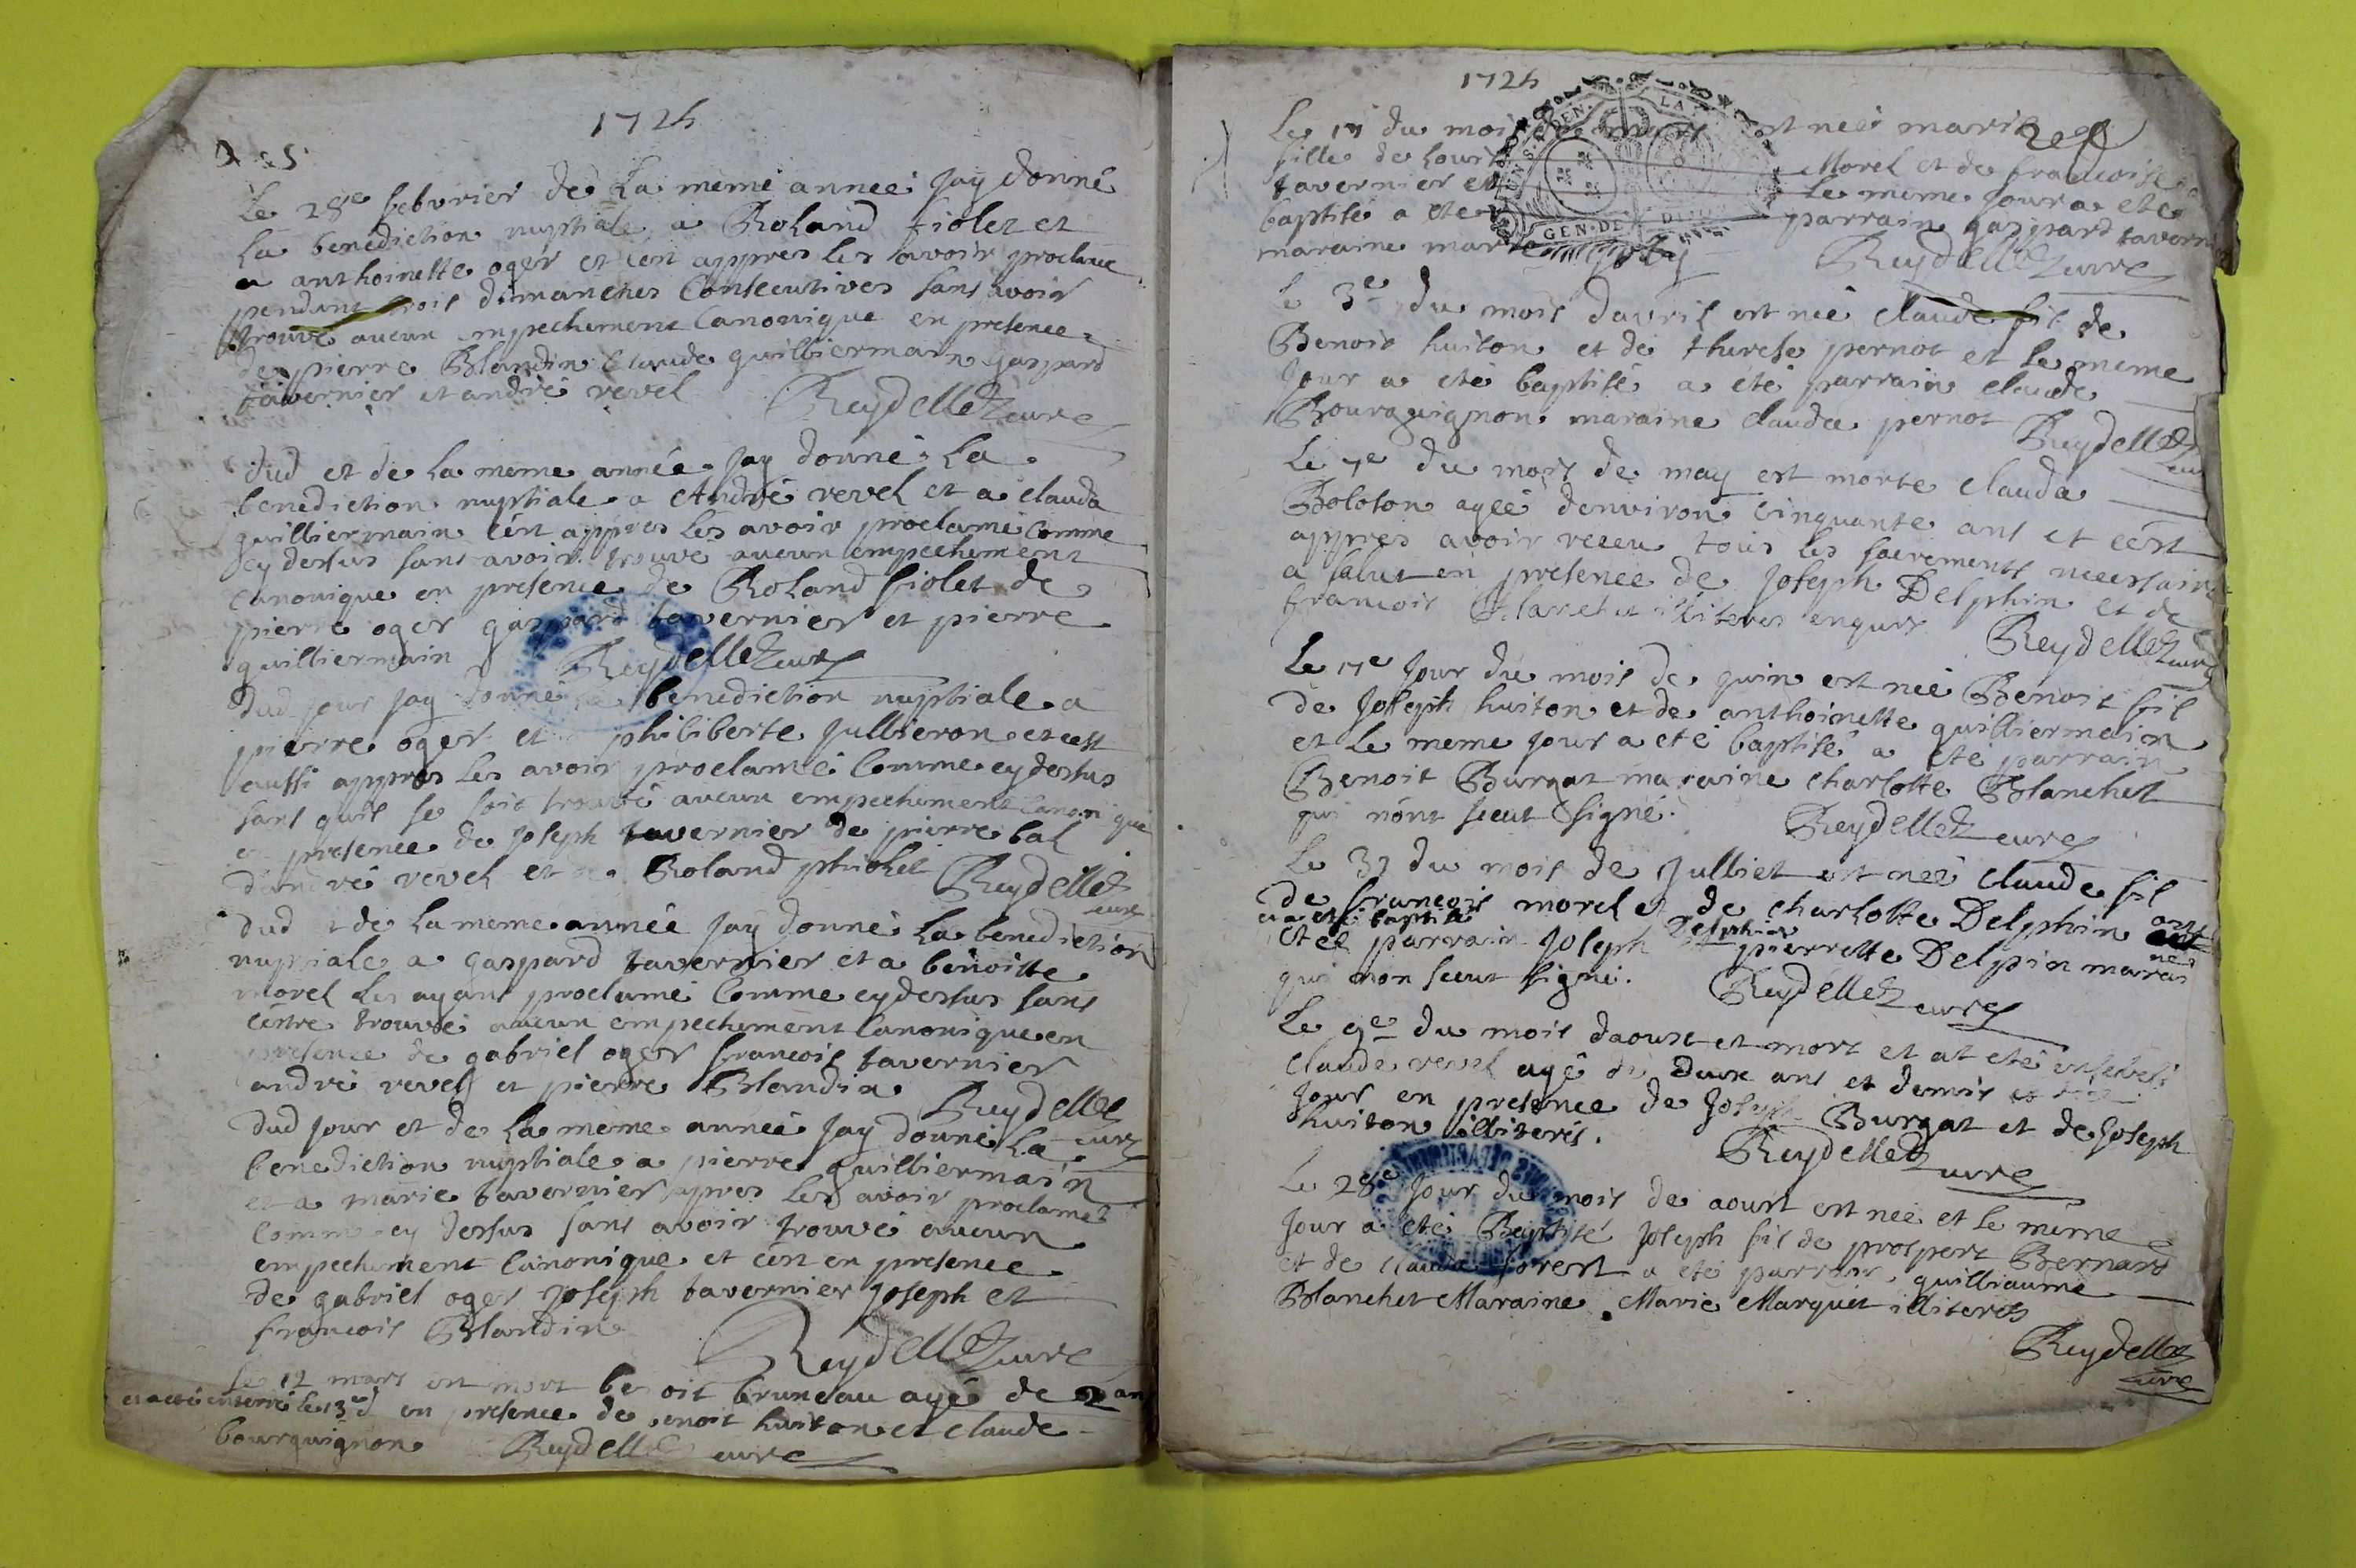 1725
Le 28e febvrier de La meme année Jay donné
La benediction nuptiale a Roland fiolet et
a anthoinette oger et cest appres les avoir proclamé
pendant trois dimanches Consecutives sans avoir
trouvé aucun empechement Canonique en presence
de pierre Blandin Claude guilliermain gaspard
tavernier et andré revel Reydellet curé
dud et de La meme année Jay donné La
benediction nuptiale a André revel et a clauda
guilliermain cest appres Les avoir proclamé Comme
cy dessus sans avoir trouvé aucun empechement
canonique en presence de Roland fiolet de
pierre oger gaspard tavernier et pierre
guilliermain Reydellet curé
dud jour jay donné La benediction nuptiale a
pierre oger et philiberte Jullieron et cest
aussi appres Les avoir proclamé Comme cy dessus
sans quil se soit trouvé aucun empechement Canonique
en presence de Joseph tavernier de pierre bal
d'andré revel et de Roland phiolet Reydellet
curé
dud et de La meme année Jay donné La benediction
nuptiale a gaspard tavernier et a benoitte
morel Les ayant proclamé Comme cy dessus sans
cestre trouvé aucun empechement Canonique en
presence de gabriel oger francois tavernier
andré revel et pierre Blandin Reydellet
dud jour et de La meme année Jay donné La curé
benediction nuptiale a pierre guilliermain
et a marie tavernier appres Les avoir proclamé
comme cy dessus sans avoir trouvé aucun
empechement Canonique et cest en presence
de gabriel oger Joseph tavernier Joseph et
francois Blandin Reydellet curé
Le 12 mars est mort benoit bruneau agé de 2 an
et a eté enterré le 13e en presence de benoit huiton et claude
bourguignon Reydellet curé
1725
Le 17 du mois de mars est neé marie
fille de Louis Morel et de francoise
tavernier et Le meme Jour a eté
baptisé a eté parrain gaspard tavernier
maraine marie Reydellet curé
GEN. DE DIJON
le 3e du mois davril est né claude fil de
Benoit huiton et de therese pernot et le meme
Jour a eté baptisé a eté parrain claude
Bourguignon maraine clauda pernot Reydellet
curé
Le 7e du mois de may est morte clauda
Boloton agée denviron cinquante ans et cest
appres avoir receu tous les sacrements necessaire
a salut en presence de Joseph Delphin et de
francois illiteres enquis Reydellet curé
Le 17e Jour du mois de juin est né Benoit fil
de Joseph huiton et de anthoinette guilliermain
et Le meme Jour a eté baptisé a eté parrain
Benoit Burgat maraine charlotte Blanchet
qui nont sceut signé. Reydellet curé
Le 31 du mois de Julliet est neé claude fil
de francois morel et de charlotte Delphin ont
et a eté baptisé
eté parrain Joseph Delphin pierrette Delpin maraine
qui non sceut signé. Reydellet curé
Le 9e du mois daoust et mort et at eté enseveli
claude revel agé de deux ans et demis
Jour en presence de Joseph Burgat et de Joseph
huiton illiterés. Reydellet curé
Le 28e Jour du mois de aoust est neé et le meme
Jour a eté Baptisé Joseph fil de prospert Bernard
et de clauda forest a eté parrain guilliaume
Blanchet Maraine Marie Marquet illiterés
Reydellet
curé